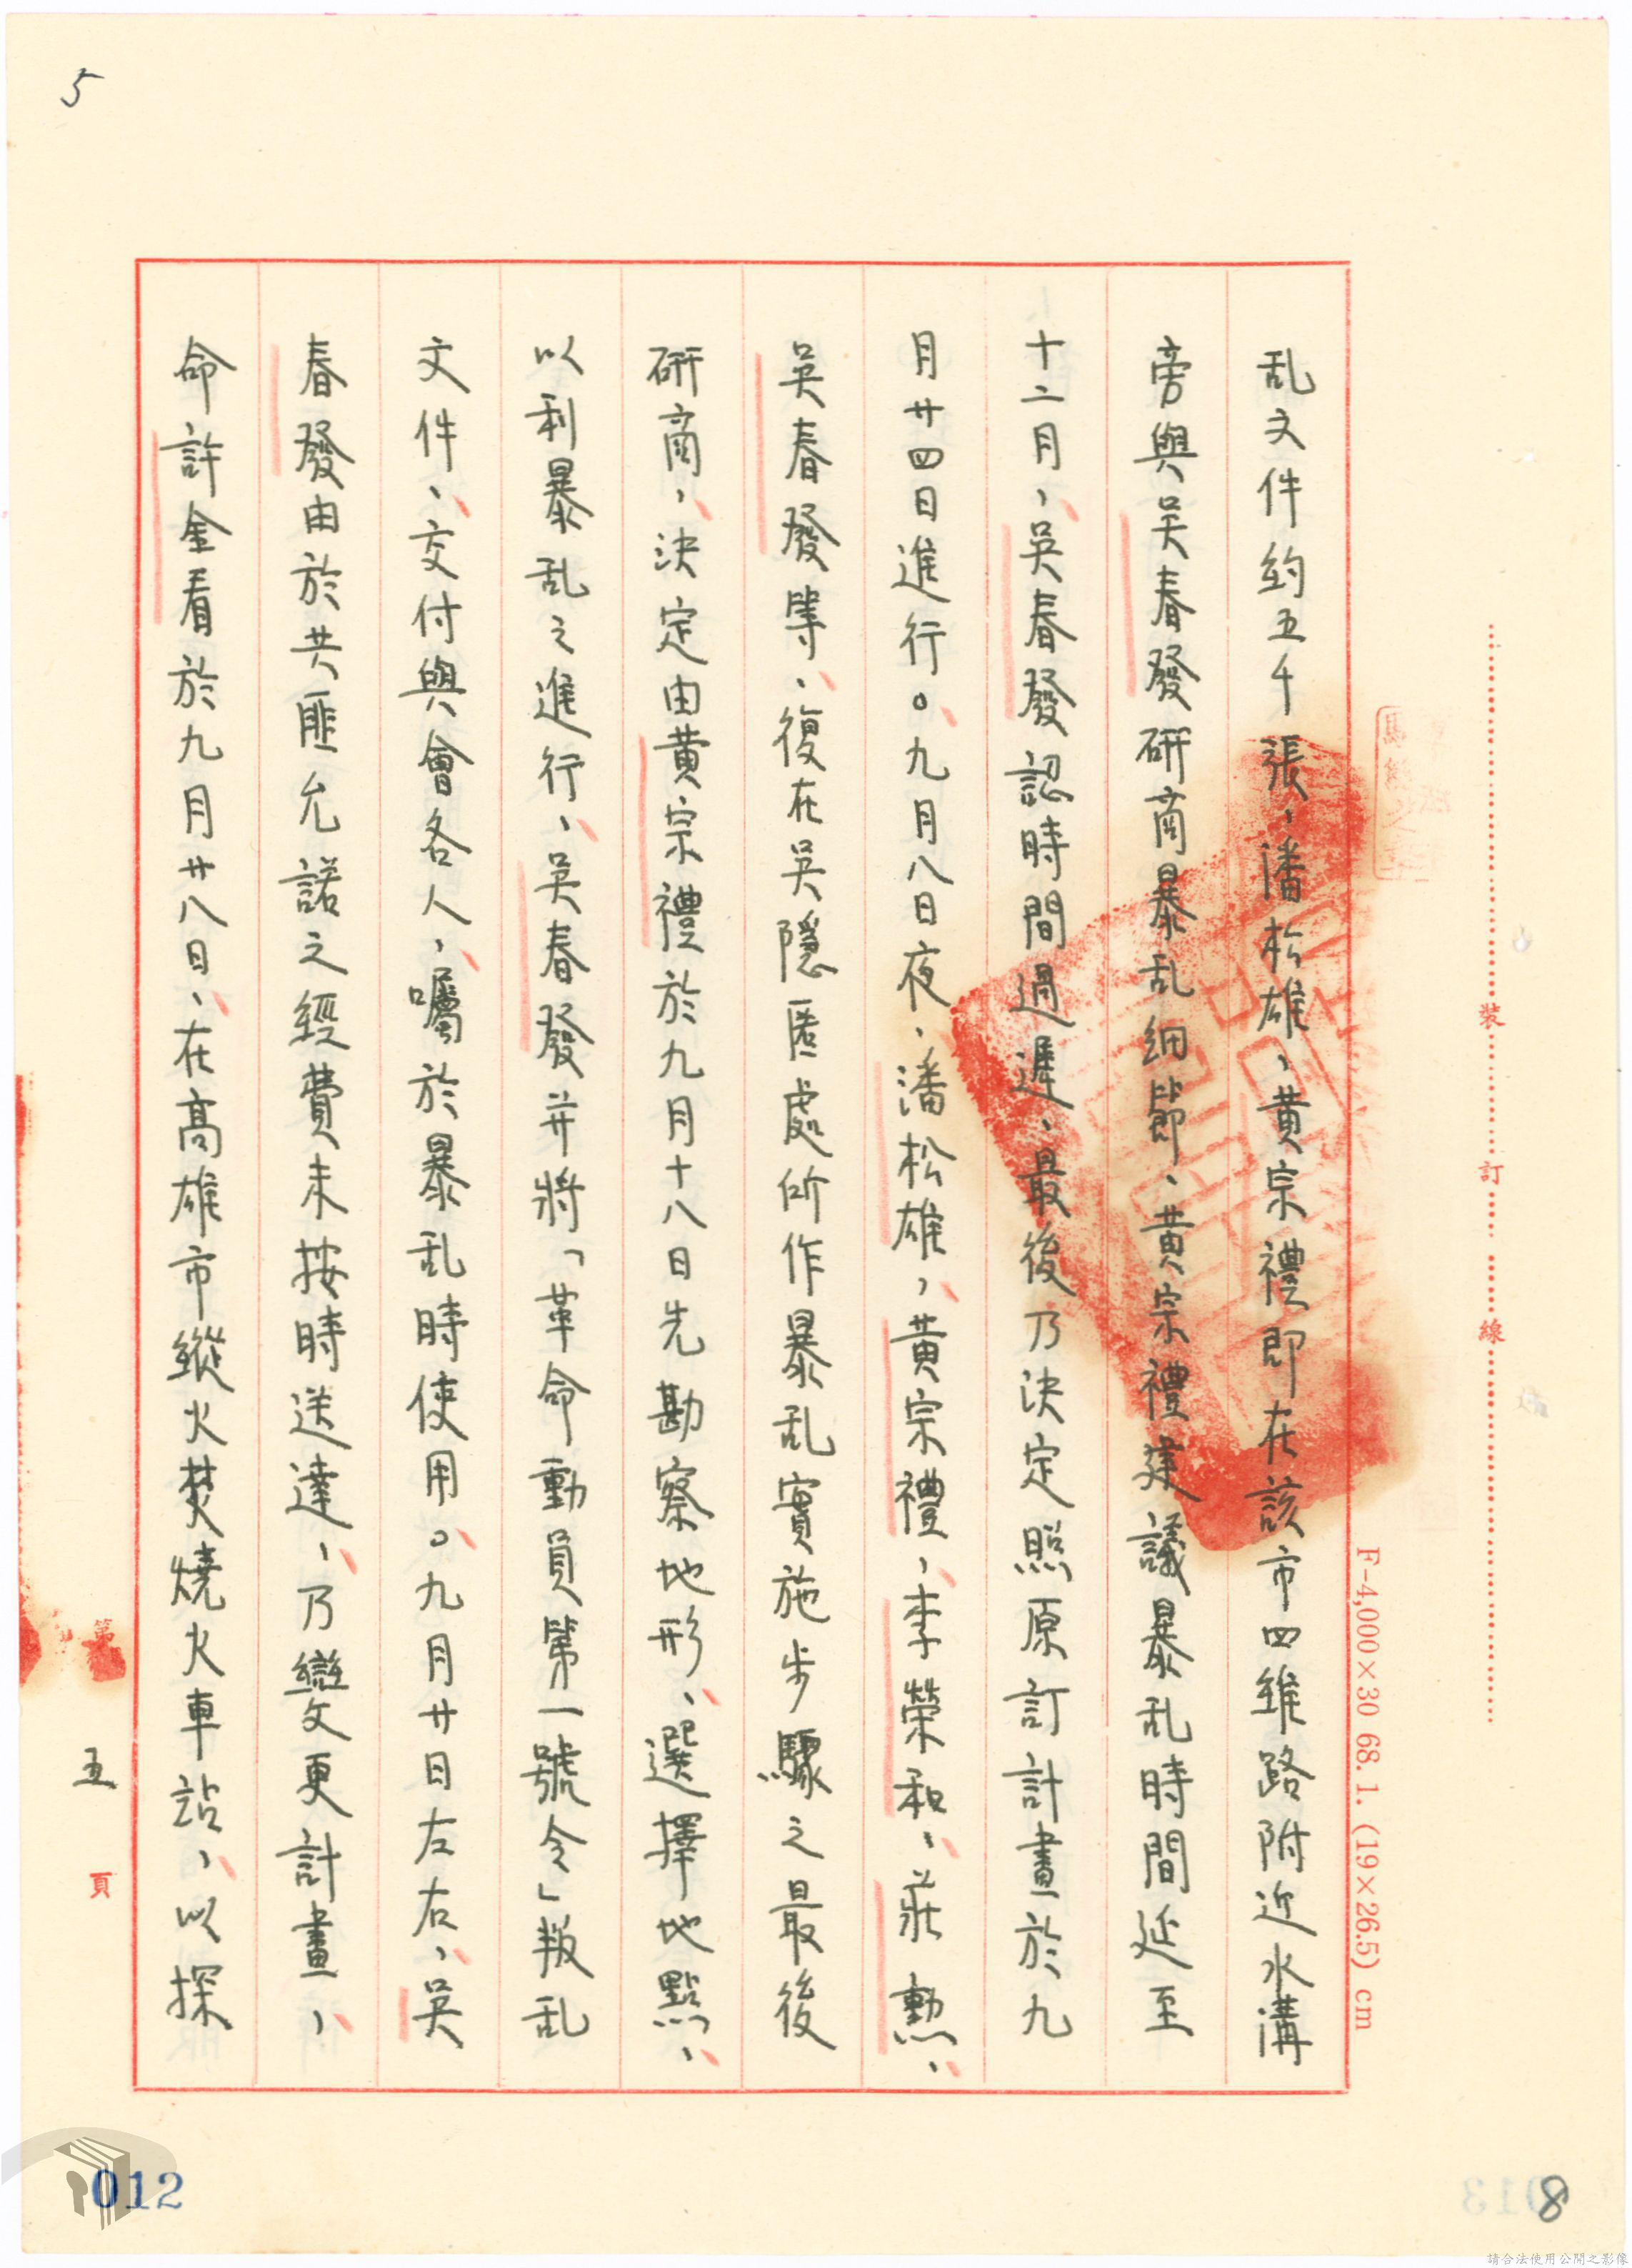 5
乱文件約五千張，潘松雄、黃宗禮即在該市四維路附近水溝
旁與吳春發研商暴乱細節、黃宗禮建議暴乱時間延至
十二月，吳春發認時間過遲、最後乃決定照原訂計畫於九
月廿四日進行。九月八日夜，潘松雄，黃宗禮、李榮和、莊勳、
吳春發等、復在吳隱匿處所作暴乱實施步驟之最後
研商，決定由黃宗禮於九月十八日先勘察地形、選擇地點、
以利暴乱之進行，吳春發并將「革命動員第一號令」叛乱
文件、交付與會各人，囑於暴乱時使用。九月廿日左右，吳
春發由於共匪允諾之經費未按時送達，乃變更計畫，
命許金看於九月廿八日、在高雄市縱火焚燒火車站，以探
第
五
頁
裝
訂
線
F-4,000×30 68.1. (19×26.5) cm
012
8
請合法使用公開之影像